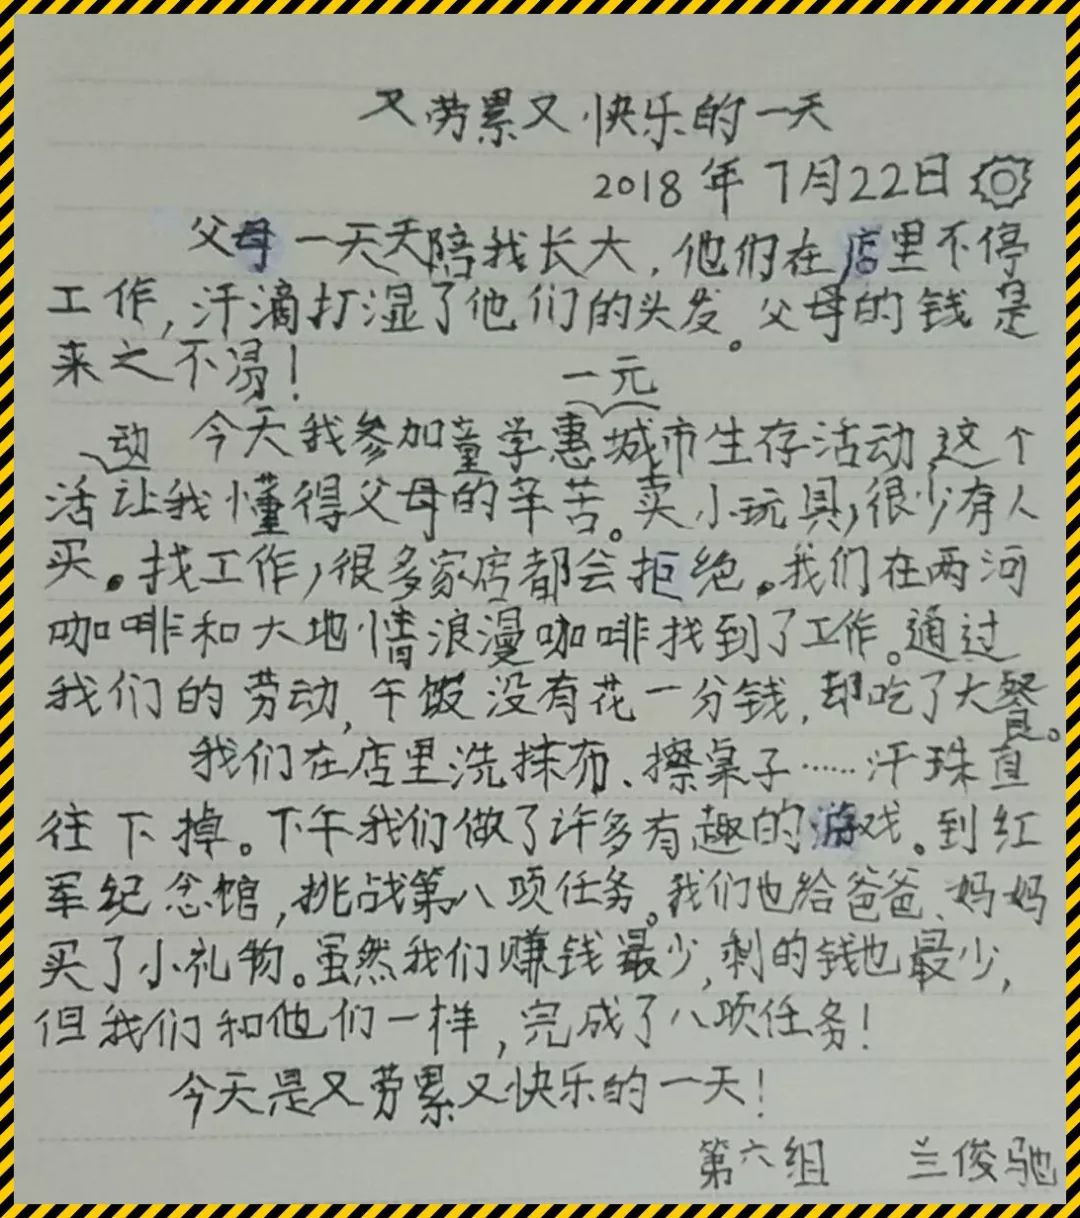 又劳累又快乐的一天
2018年7月22日
父母一天天陪我长大，他们在店里不停
工作，汗滴打湿了他们的头发。父母的钱是
来之不易！
一元
动 今天我参加童学惠城市生存活动 这个
活让我懂得父母的辛苦。卖小玩具，很少有人
买。找工作，很多家店都会拒绝。我们在两河
咖啡和大地情浪漫咖啡找到了工作。通过
我们的劳动，午饭没有花一分钱，却吃了大餐。
我们在店里洗抹布、擦桌子……汗珠直
往下掉。下午我们做了许多有趣的游戏。到红
军纪念馆，挑战第八项任务。我们也给爸爸、妈妈
买了小礼物。虽然我们赚钱最少，剩的钱也最少，
但我们和他们一样，完成了八项任务！
今天是又劳累又快乐的一天！
第六组 兰俊驰